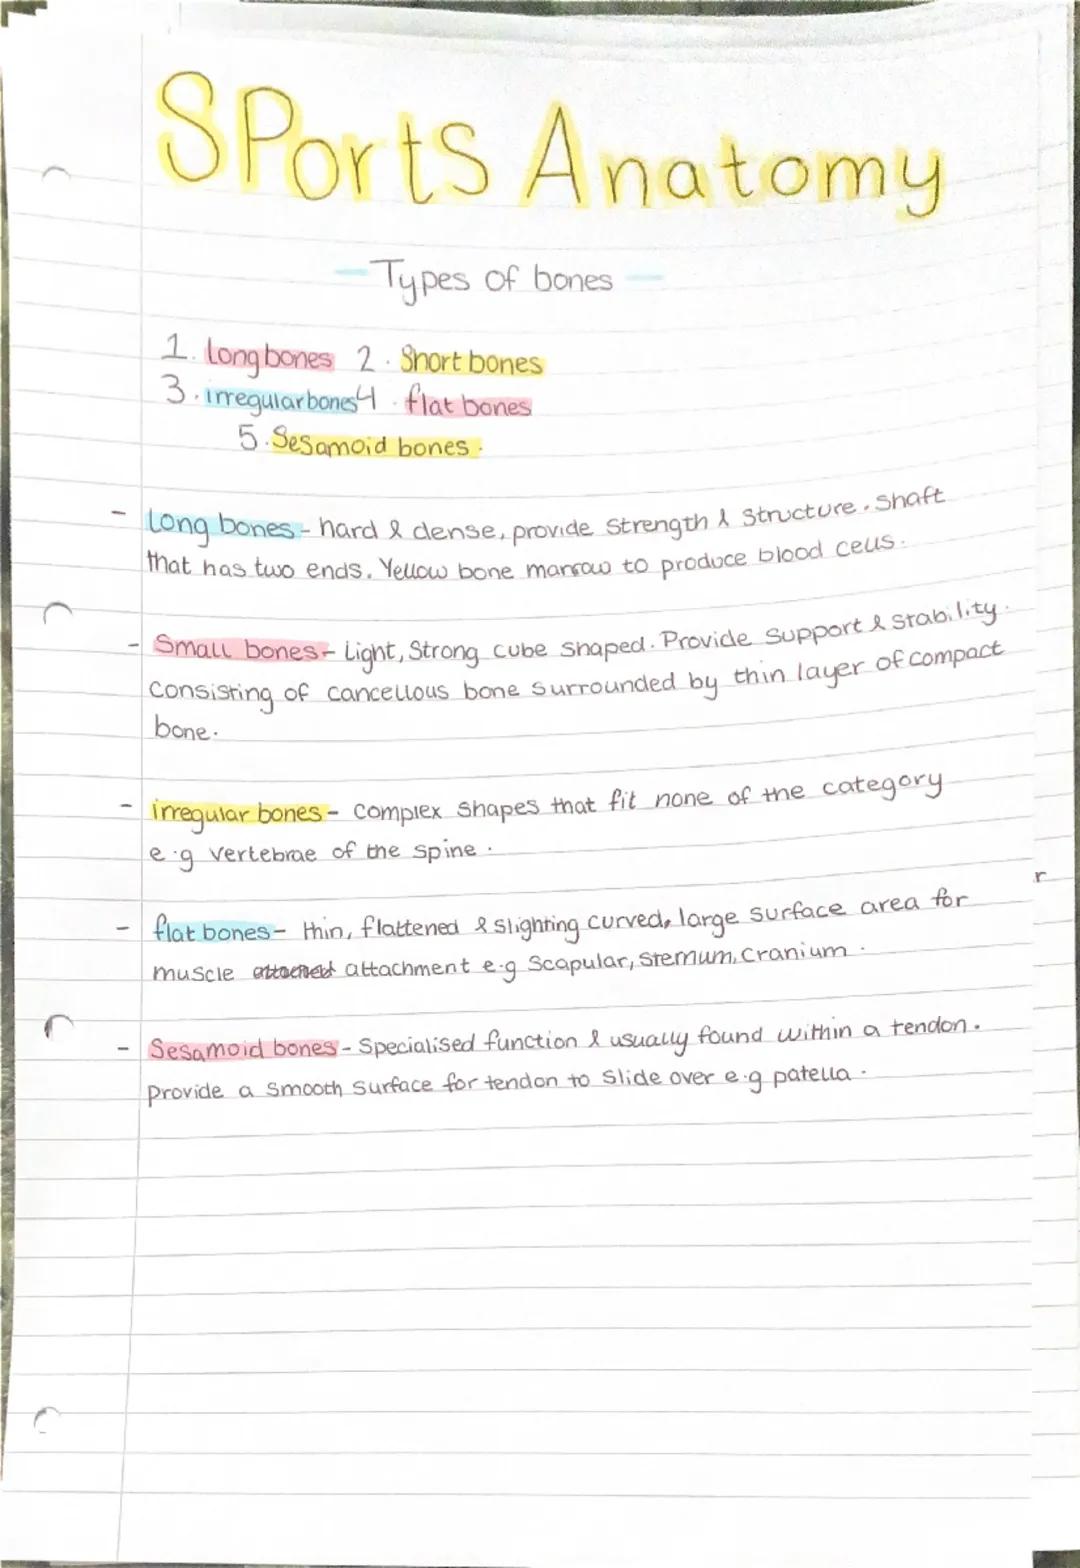 SPorts Anatomy
Types of bones
1. Long bones 2. Short bones
3. irregular bones 4. flat bones
5. Sesamoid bones.
- Long bones - hard & dense, provide strength & structure. Shaft
that has two ends. Yellow bone marrow to produce blood cells.
- Small bones - Light, Strong cube shaped. Provide support & stability.
consisting of cancellous bone surrounded by thin layer of compact
bone.
- irregular bones - complex shapes that fit none of the category
e.g vertebrae of the spine.
- flat bones - thin, flattened & slighting curved, large surface area for
muscle attached attachment e.g Scapular, sternum, cranium.
- Sesamoid bones - Specialised function & usually found within a tendon.
Provide a smooth surface for tendon to slide over e.g patella.
r